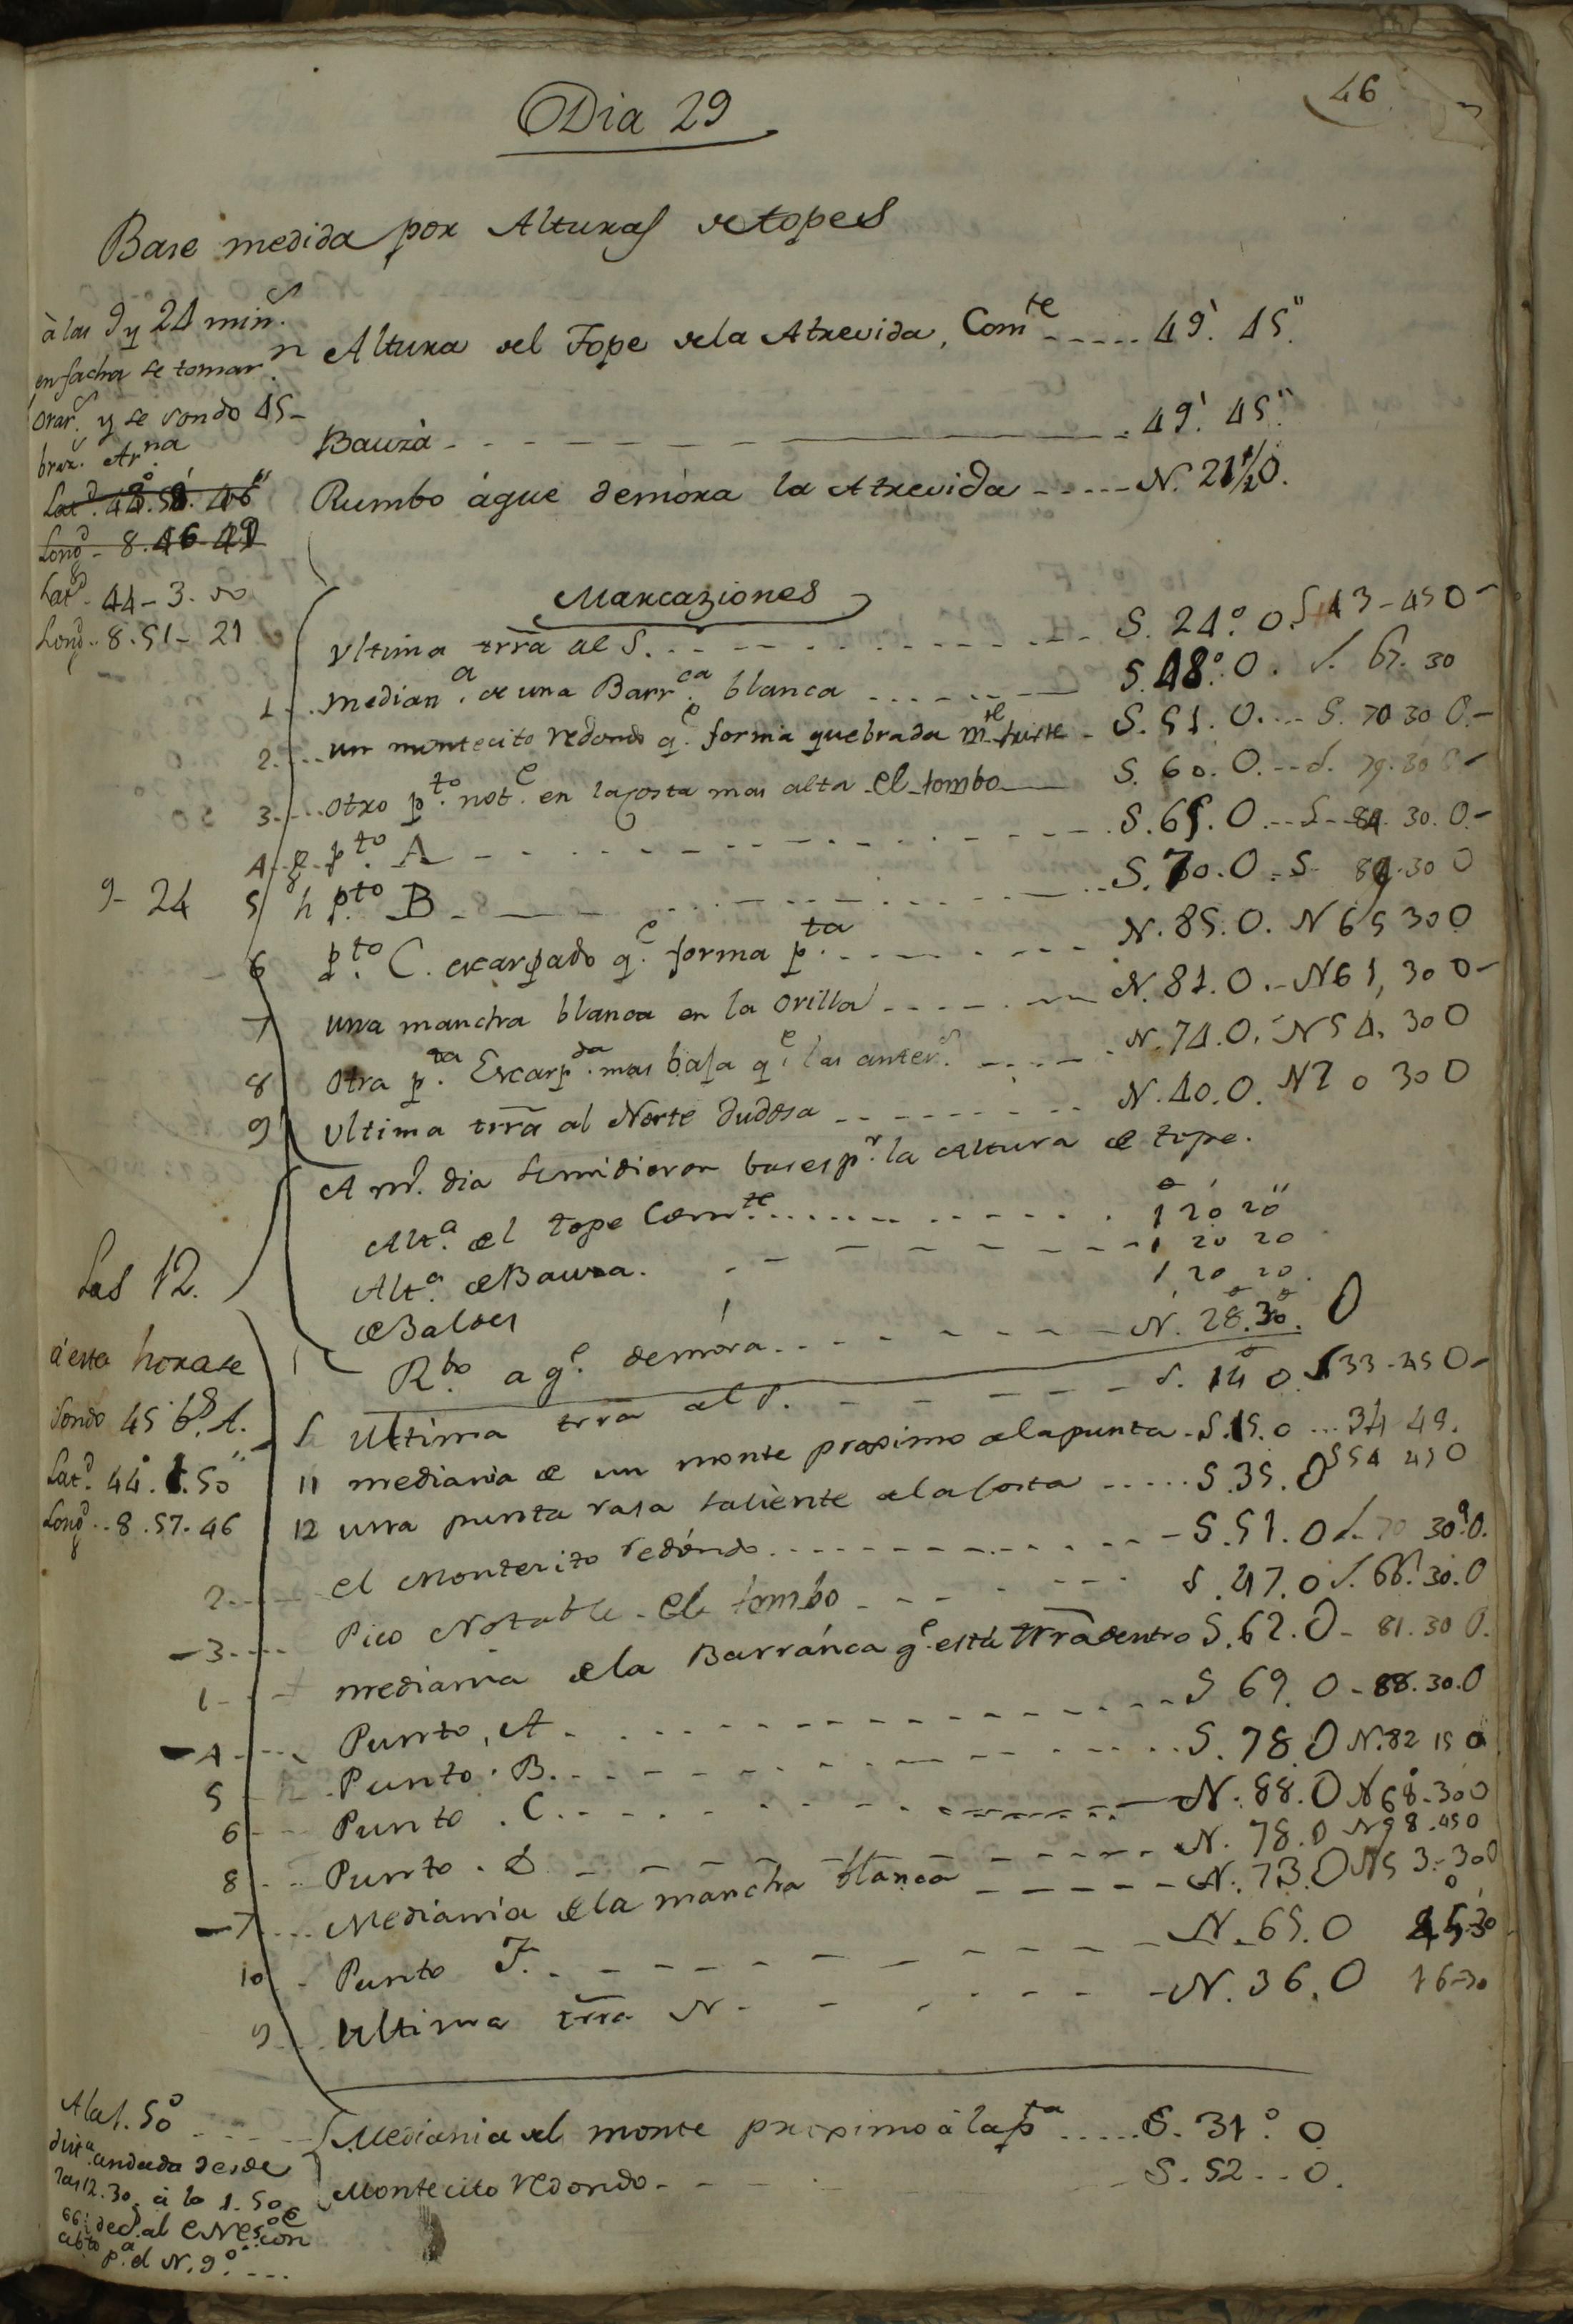 46
Dia 29
Base medida por Alturas de topes
à las 9 y 24 min.s
en facha se tomar.n
orar.s y se sondo 45
braz.s Ar.na
Lat.d 44. 51. 46"
Long.d - 8. 46 49
Lat.d 44 - 3. 50
Long.d .. 8. 51 - 21
Altura del Tope dela Atrevida, Com.te ----- 49'. 45".
Bauzà ----- 49'. 45".
Rumbo áque demóra la Atrevida ----- N. 21 1/2 O.
Marcaziones
Vltima trra al S. ----- S. 24.° O. S 43 - 45 O -
1 - median.a de una Barr.ca blanca ----- S. 48.° O. S. 67. 30
2 - un montecito redondo q.e forma quebrada m.te fuerte - S. 51. O. --- S. 70 30 O. -
3 - Otro p.to not.e en la costa mas alta - El tombo --- S. 60. O. --- S. 79. 30 O -
4 - g - p.to A ----- S. 65. O. --- S -- 84. 30. O. -
9 - 24
5 h p.to B ----- S. 70. O. - S - 89. 30 O
6 p.to C. escarpado q.e forma p.ta ----- N. 85. O. N 65 30 O
7 una mancha blanca en la orilla ----- N. 81. O. - N 61, 30 O -
8 Otra p.ta Escarp.da mas baja q.e las anter.s ----- N. 74. O. - N 54, 30 O
9 Ultima trra al Norte dudosa ----- N. 40. O. N 20 30 O
Las 12.
A m.o dia se midieron bases p.r la altura de tope.
Alt.a del tope Com.te ----- 1° 20' 20"
Alt.a de Bauza. ----- 1 20 20
de Baldes 1 20 20.
R.bo a q.e demóra ----- N. 28.° 30. O
á esta hora se
sondo 45 b.s A.
Lat.d 44.° 1. 50"
Long.d .. 8. 57. 46
Ultima trra al S. ----- S. 14 O. S 33 - 45 O -
11 mediania de un monte proximo a la punta - S. 15. O ... 34 45.
12 una punta rasa saliente de la Costa ----- S. 35. O S 54 45 O
2 - el Montecito redóndo ----- S. 51. O S. 70 30° O.
- 3 - Pico Notable - El tombo ----- S. 47. O S. 66. 30. O
1 - mediania de la Barránca q.e está trra dentro S. 62. O - 81. 30 O.
- 4 - Punto, A ----- S 69. O - 88. 30. O
5 - Punto. B. ----- S. 78. O N. 82 15 O
6 - Punto. C. ----- N. 88. O N 68. 30 O
8 - Punto. D ----- N. 78. O N 58. 45 O
- 7 - Mediania de la mancha blanca ----- N. 73. O N 53 - 30 O
10 - Punto F. ----- N. 65. O 45 - 30
9 - Ultima trra N - ----- N. 36. O 16 - 30
A la 1. 50 -----
dist.a andada desde
las 12. 30 à la 1. 50
66: dec.s al ENE 5.° con
p.a el N. 9.° ---
Mediania del monte proximo à la p.ta ----- S. 31.° O
Montecito redondo ----- S. 52 .. O.